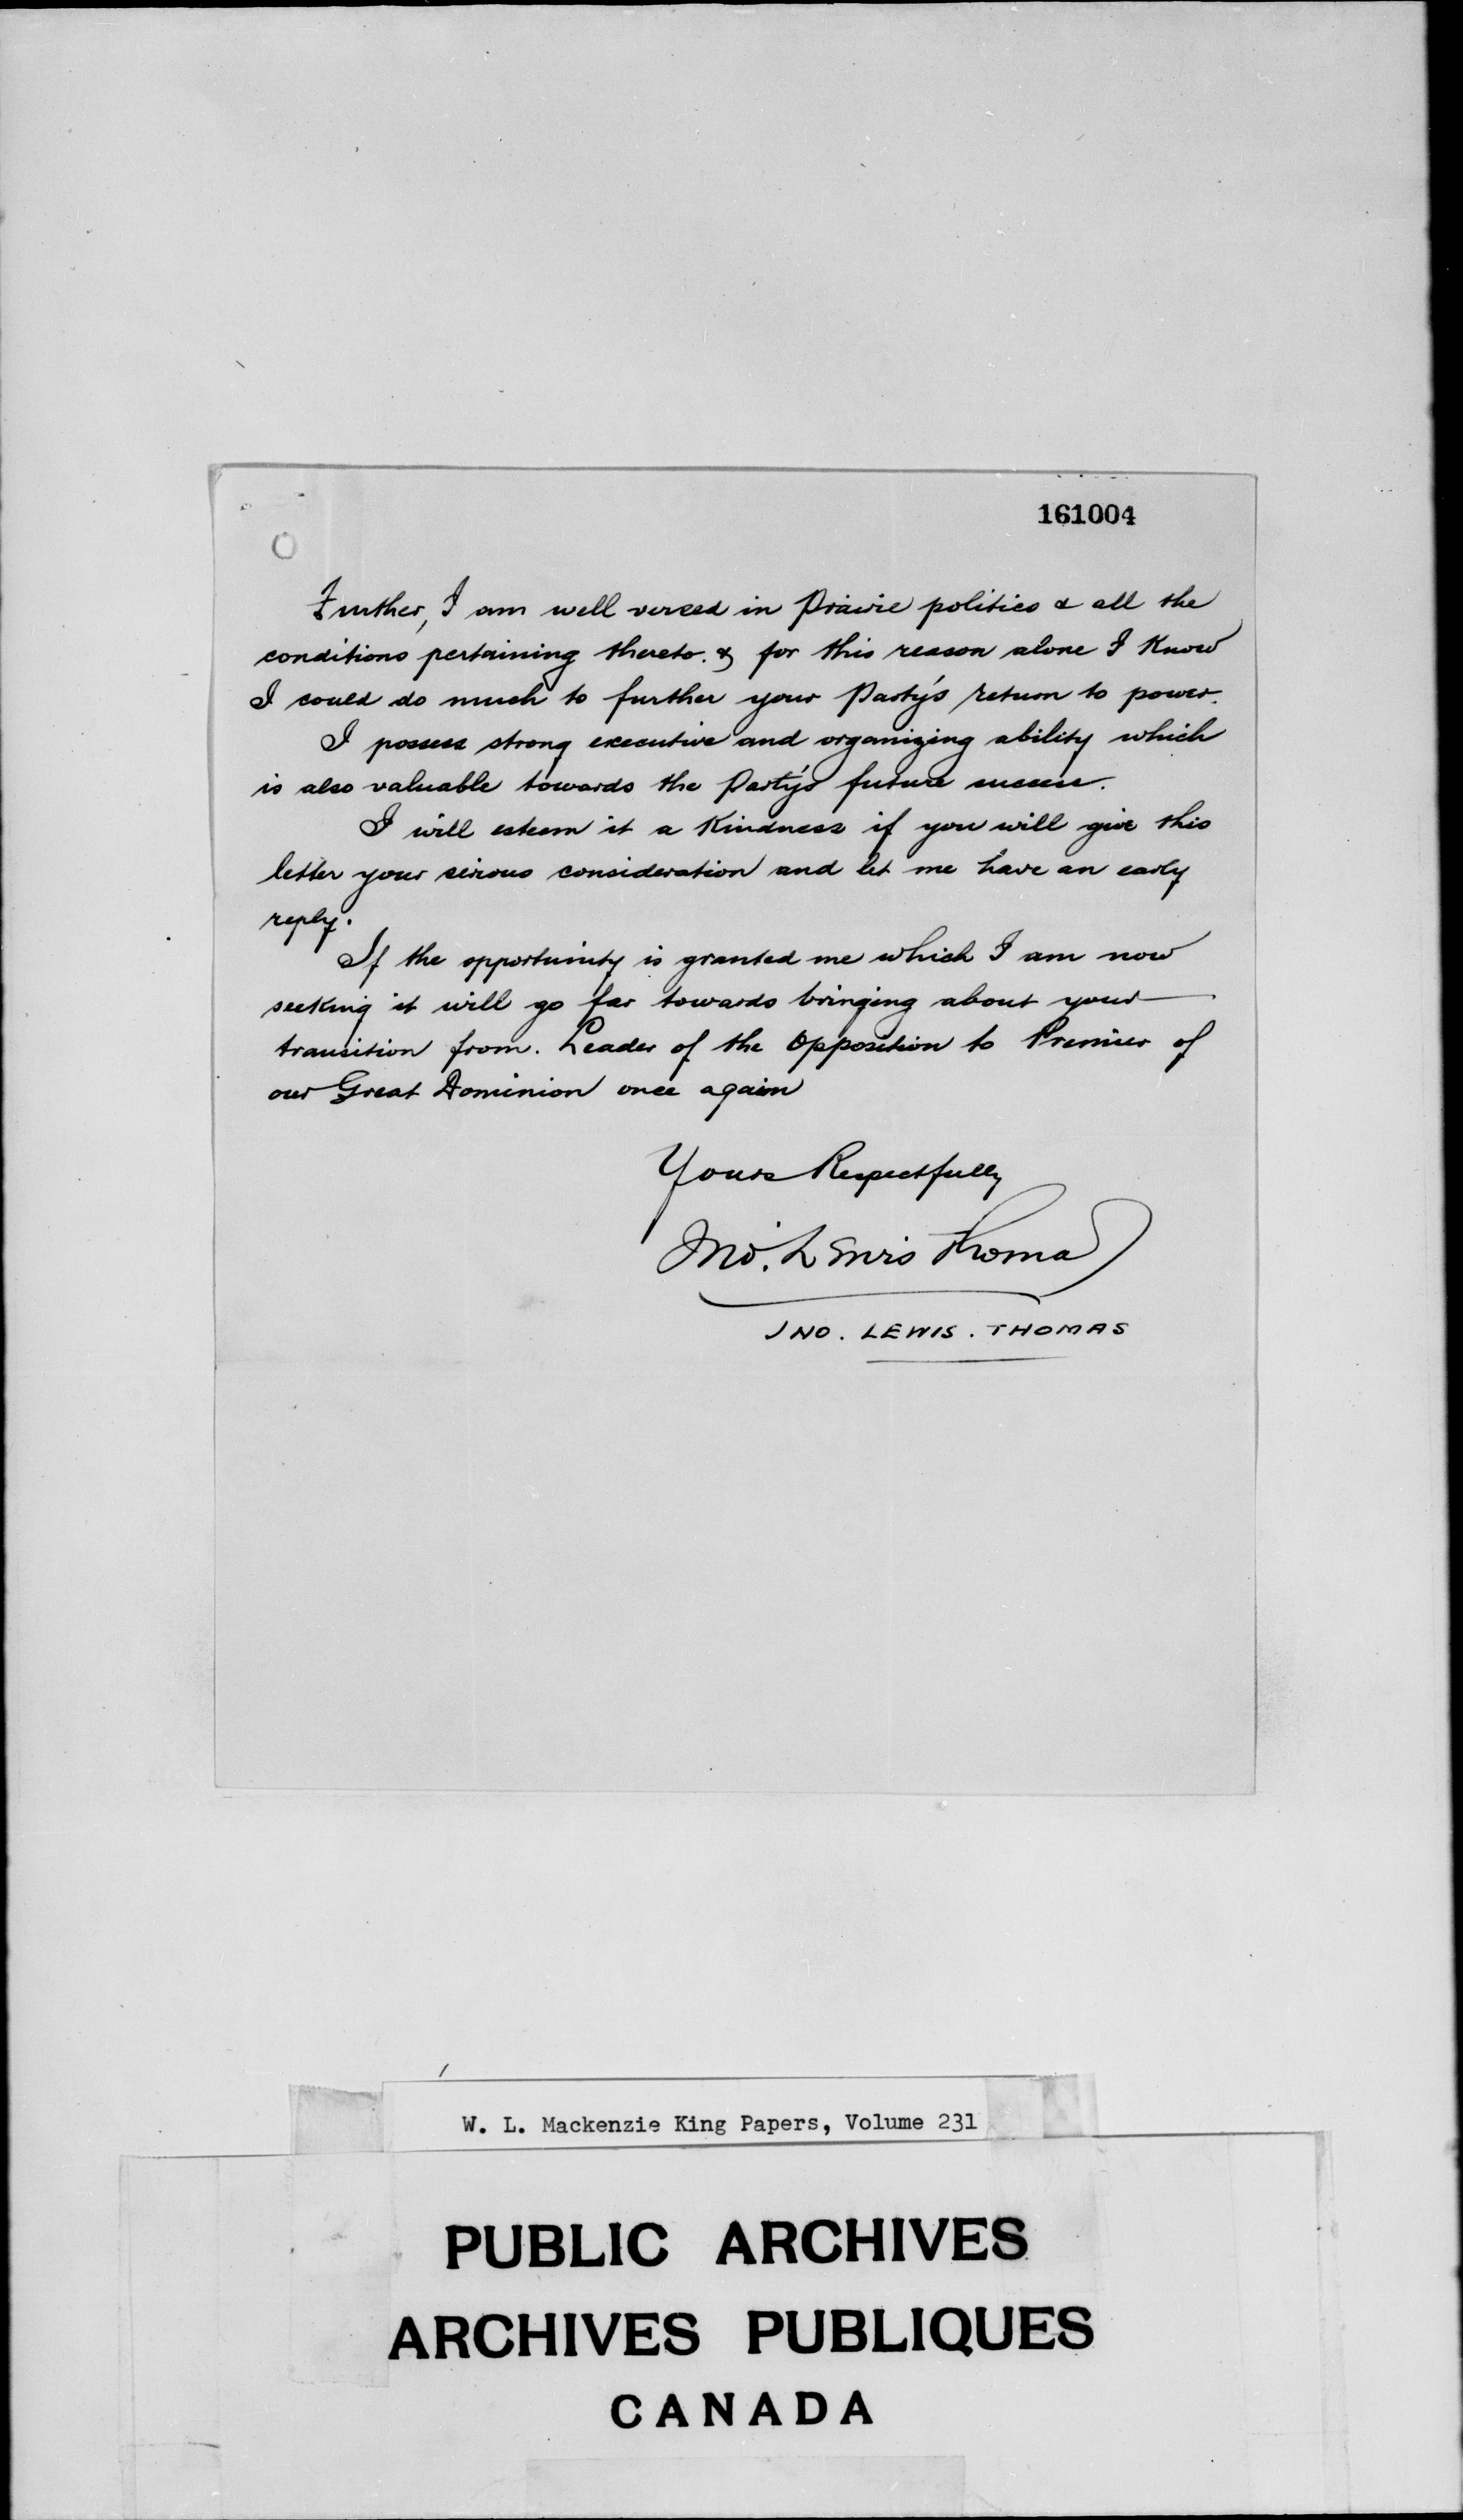 161004
Further, I am well versed in Prairie politics & all the
conditions pertaining thereto. & for this reason alone I Know
I could do much to further your Party's return to power.
I possess strong executive and organizing ability which
is also valuable towards the Party's future success.
I will esteem it a Kindness if you will give this
letter your serious consideration and let me have an early
reply.
If the opportunity is granted me which I am now
seeking it will go far towards bringing about your
transition from. Leader of the Opposition to Premier of
our Great Dominion once again
Yours Respectfully
Jno. Lewis Thomas
JNO. LEWIS. THOMAS
W. L. Mackenzie King Papers, Volume 231
PUBLIC ARCHIVES
ARCHIVES PUBLIQUES
CANADA